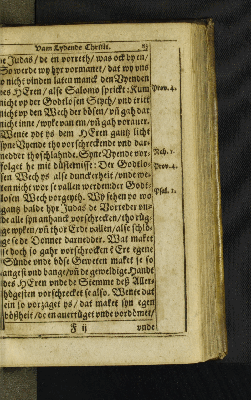 Vam Lydende Christi.
te Judas/ de en vorreth/ was ock by en/
So werde wy hyr vormanet/ dat wy vns
nicht vinden laten manck den Vyenden
des HEren/ alse Salomo sprickt: Kum Prov. 4.
nicht vp der Godtlosen Stych/ vnd tritt
nicht vp den Wech der bösen/ vñ gah dar
nicht inne/ wyke van em/ vñ gah vorauer.
Wente ydt ys dem HEren gantz licht
syne Vyende tho vorschreckende vnd dar-
nedder thoschlahnde. Syne Vyende vor- Nah. 1.
folget he mit düsternisse: Der Godtlo- Prov. 4.
sen Wech ys alse dunckerheit/ vnde we-
ten nicht wor se vallen werden
der Godt- Psal. 1.
losen Wech vorgeyth. Wy sehen yo wo
gantz balde hyr Judas de Vorreder vn-
de alle syn anhanck vorschrecken/ thorüg-
ge wyken/ vñ thor Erde vallen/ alse schlö-
ge se de Donner darnedder. Wat maket
se doch so gahr vorschrocken? Ere egene
Sünde vnde böse Geweten maket se so
angest vnd bange/ vñ de geweldige Hande
des HEren vnde de Stemme deß Aller-
högesten vorschrecket se also. Wente dat
ein so vorzaget ys/ dat maket syn egen
bößheit/ de en auertüget vnde vordömet/
F ij vnde